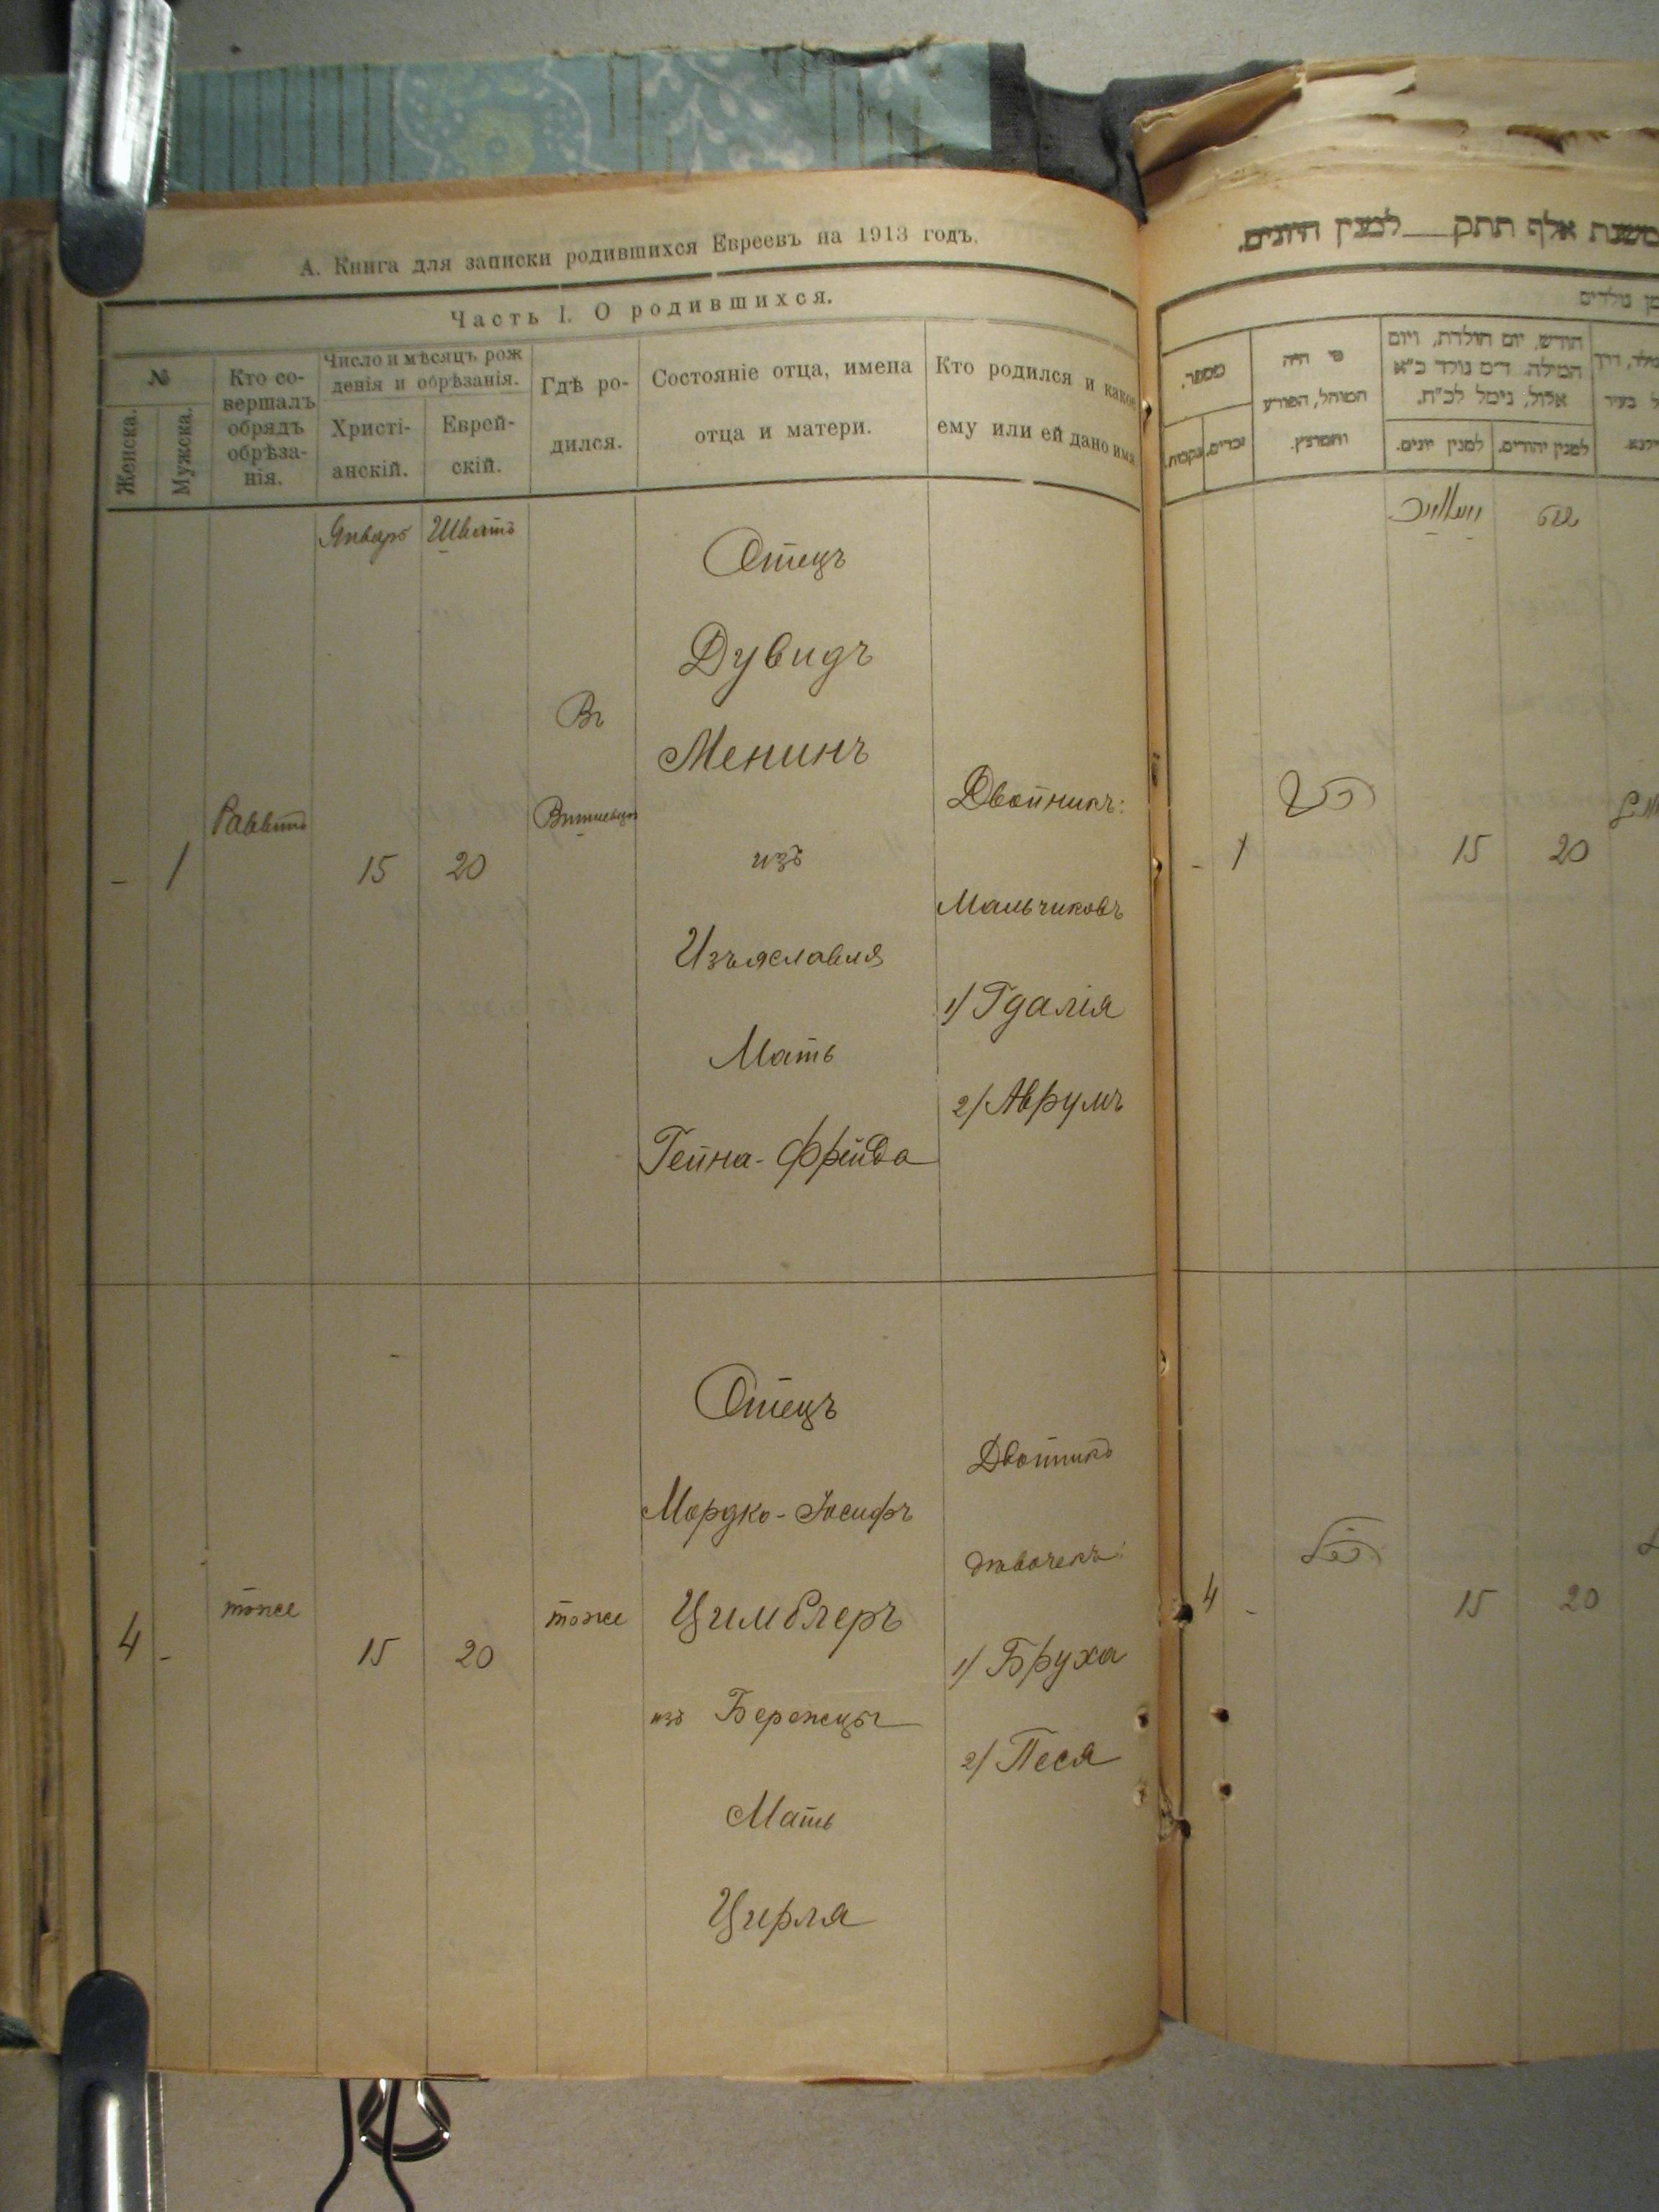 А. Книга для записки родившихся Евреевъ на 1913 годъ.
Часть I. О родившихся.
№
Женска.
Мужска.
Кто со-
вершалъ
обрядъ
обрѣза-
нія.
Число и мѣсяцъ рож
денія и обрѣзанія.
Христі-
анскій.
Еврей-
скій.
Гдѣ ро-
дился.
Состояніе отца, имена
отца и матери.
Кто родился и какое
ему или ей дано имя
Январь
Шватъ
-
1
15
20
Въ
Отецъ
Дувидъ
Менинъ
изъ
Изъяславля
Мать
Гейна-Фрейда
Двойникъ:
Мальчиковъ
1) Гдалія
2) Аврумъ
4
-
тоже
15
20
тоже
Отецъ
Мордко-Іосифъ
Цимблеръ
изъ Бережцы
Мать
Цирля
Двойникъ
дѣвочекъ:
1) Бруха
2) Песя
משנת אלף תתק___למנין היונים.
מספר.
זכרים.
נקבות.
מי היה
המוהל, הפורע
והמוצץ.
חודש, יום הולדת, ויום
המילה. ד״מ נולד כ״א
אלול, נימל לכ״ח.
למנין יונים.
למנין יהודים.
שבט
-
1
15
20
4
-
15
20